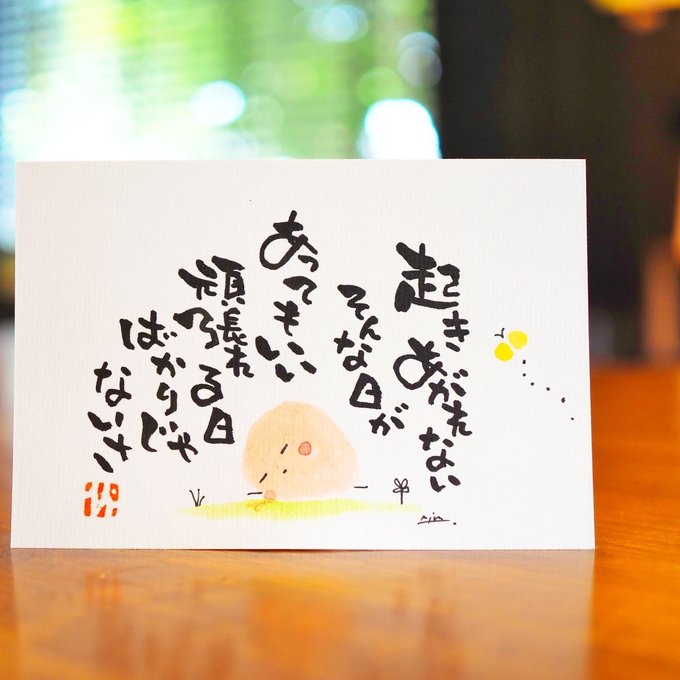 起きあがれない
そんな日が
あってもいい
頑張れる日
ばかりじゃ
ないさ